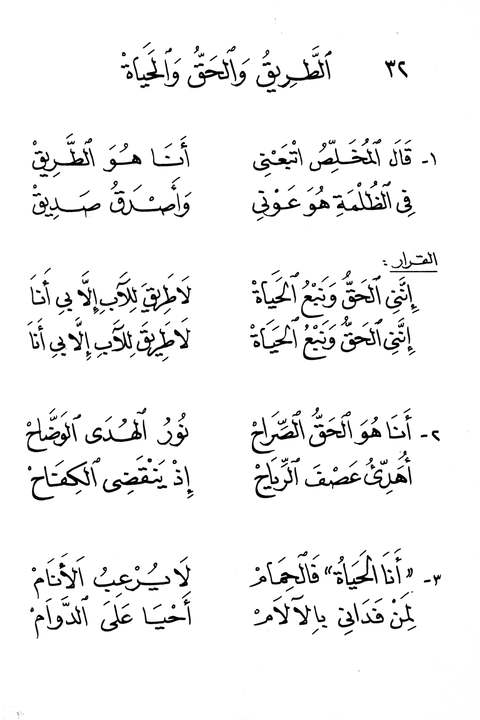 ٣٢ اَلطَّرِيقُ وَاْلحَقُّ وَاْلحَيَاةْ
١- قَالَ اْلمُخَلِّصُ اتْبَعْنِى أَنَا هُوَ الطَّرِيقْ
فِى الظُلْمَةِ هُوَ عَوْنِي وَأَصْدَقُ صَدِيقْ
القرار:
إِنَّنِي اْلحَقُّ وَنَبْعُ اْلحَيَاةْ لَا طَرِيقَ لِلآبِ إِلَّا بِي أَنَا
إِنَّنِي اْلحَقُّ وَنَبْعُ اْلحَيَاةْ لَا طَرِيقَ لِلآبِ إِلَّا بِي أَنَا
٢- أَنَا هُوَ اْلحَقُّ الصِّرَاحْ نُورُ اْلهُدَى اْلوَضَّاحْ
أُهَدِّئُ عَصْفَ الرِّيَاحْ إِذْ يَنْقَضِى اْلكِفَاحْ
٣- «أَنَا اْلحَيَاةُ» فَالْحِمَامْ لَا يُرْعِبُ اْلأَنَامْ
لِمَنْ فَدَانِي بِالآلَامْ أَحْيَا عَلَى الدَّوَامْ